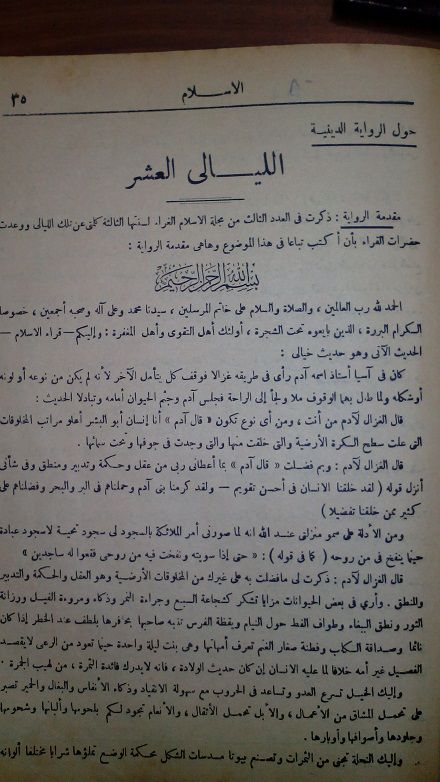 ٣٥
الاسلام
حول الرواية الدينية
الليالى العشر
مقدمة الرواية : ذكرت فى العدد الثالث من مجلة الاسلام الغراء لسنتها الثالثة كلمتى عن تلك الليالى ووعدت
حضرات القراء بأن أكتب تباعا فى هذا الموضوع وهاهى مقدمة الرواية :
بسم الله الرحمن الرحيم
الحمد لله رب العالمين ، والصلاة والسلام على خاتم المرسلين ، سيدنا محمد وعلى آله وصحبه أجمعين ، خصوصا
السكرام البررة ، الذين بايعوه تحت الشجرة ، أولئك أهل التقوى وأهل المغفرة : وإليكم — قراء الاسلام —
الحديث الآتى وهو حديث خيالى :
كان فى آسيا أستاذ اسمه آدم رأى فى طريقه غزالا فوقف كل يتأمل الآخر لأنه لم يكن من نوعه أو لونه
أوشكله ولما طال بهما الوقوف ملا ولجأ إلى الراحة فجلس آدم وجثم الحيوان أمامه وتبادلا الحديث :
قال الغزال لآدم : من أنت ، ومن أى نوع تكون « قال آدم » أنا إنسان أبو البشر أعلو مراتب المخلوقات
التى علت سطح السكرة الأرضية والتى خلقت منها والتى وجدت فى جوفها وتحت سمائها .
قال الغزال لآدم : وبم فضلت « قال آدم » بما أعطانى ربى من عقل وحكمة وتدبير ومنطق وفى شأنى
أنزل قوله ( لقد خلقنا الانسان فى أحسن تقويم — ولقد كرمنا بنى آدم وحملناهم فى البر والبحر وفضلناهم على
كثير ممن خلقنا تفضيلا )
ومن الأدلة على سمو منزلتى عند الله انه لما صورنى أمر الملائكة بالسجود لى سجود تحية لاسجود عبادة
حينما ينفخ فى من روحه ( كما فى قوله ) : « حتى إذا سويته ونفخت فيه من روحى فقعوا له ساجدين »
قال الغزال لآدم : ذكرت لى مافضلت به على غيرك من المخلوقات الأرضية وهو العقل والحكمة والتدبير
والمنطق . وأرى فى بعض الحيوانات مزايا تشكر كشجاعة السبع وجراءة النمر وذكاء ومروءة الفيل ورزانة
الثور ونطق الببغاء وطواف القط حول النيام ويقظة الفرس تنبه صاحبها بحافرها بلطف عند الخطر إذا كان
نائما وصداقة الكلب وفطنة صغار الغنم تعرف أمهاتها وهى بنت ليلة واحدة حينما تعود من الرعى لايقصد
الفصيل غير أمه خلافا لما عليه الانسان إن كان حديث الولادة ، فانه لايدرك فائدة التمرة ، من لهيب الجمرة .
وإليك الخيل تسرع العدو وتساعد فى الحروب مع سهولة الانقياد وذكاء الأنفاس والبغال والحمير تصبر
على تحمل المشاق من الأعمال ، والابل تحمل الأثقال ، والأنعام تجود لكم بلحومها وألبانها وشحومها
وجلودها وأصوافها وأوبارها .
وإليك النحلة تجنى من الثمرات وتصنع بيوتا مسدسات الشكل محكمة الوضع تملؤها شرابا مختلفا ألوانه